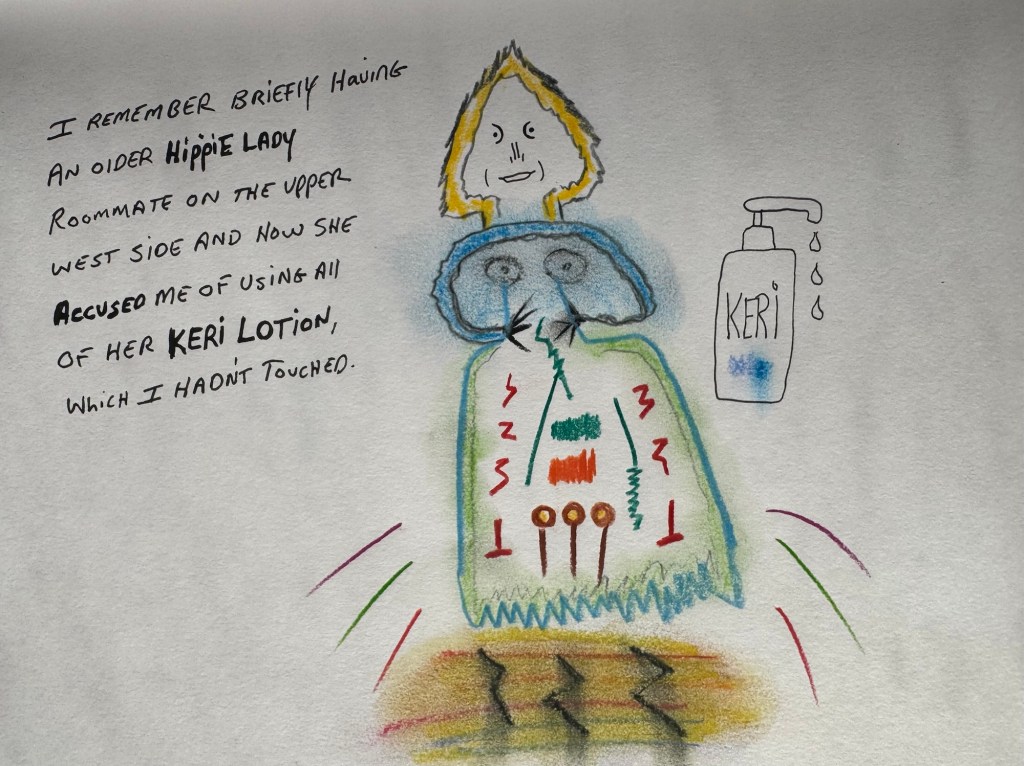 I REMEMBER BRIEFLY HAVING
AN OLDER HIPPIE LADY
ROOMMATE ON THE UPPER
WEST SIDE AND HOW SHE
ACCUSED ME OF USING ALL
OF HER KERI LOTION,
WHICH I HADN'T TOUCHED.
KERI